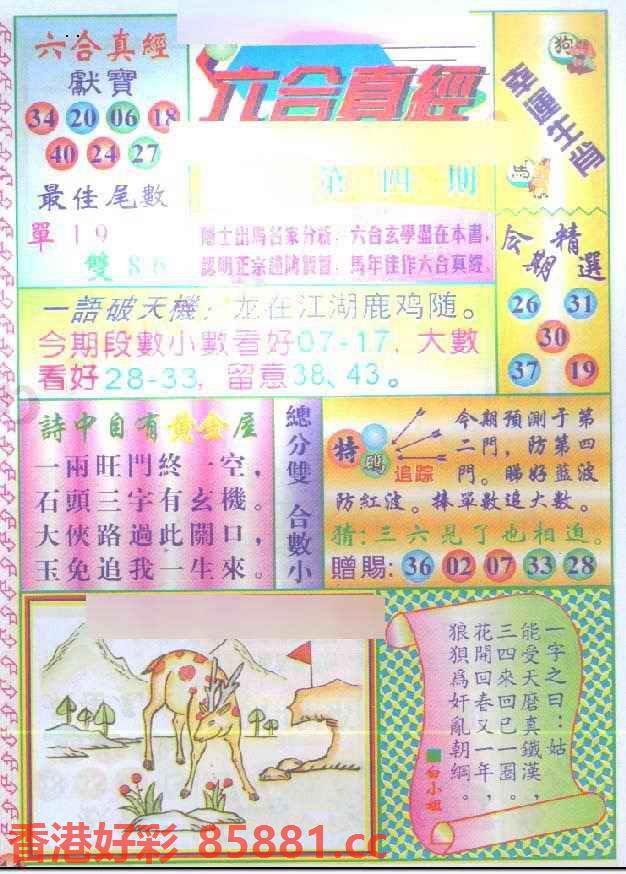 六合真經
獻寶
34 20 06 18
40 24 27
最佳尾數
單 1 9
雙 8 6
六合真經
第 四 期
隱士出馬名家分析，六合玄學盡在本書，
馬年佳作六合真經。
幸運生肖
狗
馬
今期精選
26 31
30
37 19
一語破天機：龙在江湖鹿鸡随。
今期段數小數看好07-17，大數
看好28-33，留意38、43。
詩中自有黃金屋
一兩旺門終一空，
石頭三字有玄機。
大俠路過此開口，
玉兔追我一生來。
總分雙 合數小
特碼
追踪
今期預測于第
二門，防第四
門。睇好藍波
防紅波。捧單數追大數。
猜：三六見了也相迫。
贈賜：36 02 07 33 28
一字之曰：姑
能受天磨真鐵漢，
三四來回已一圈。
花開回春又一年，
狼狽爲奸亂朝綱。
白小姐
香港好彩 85881.cc